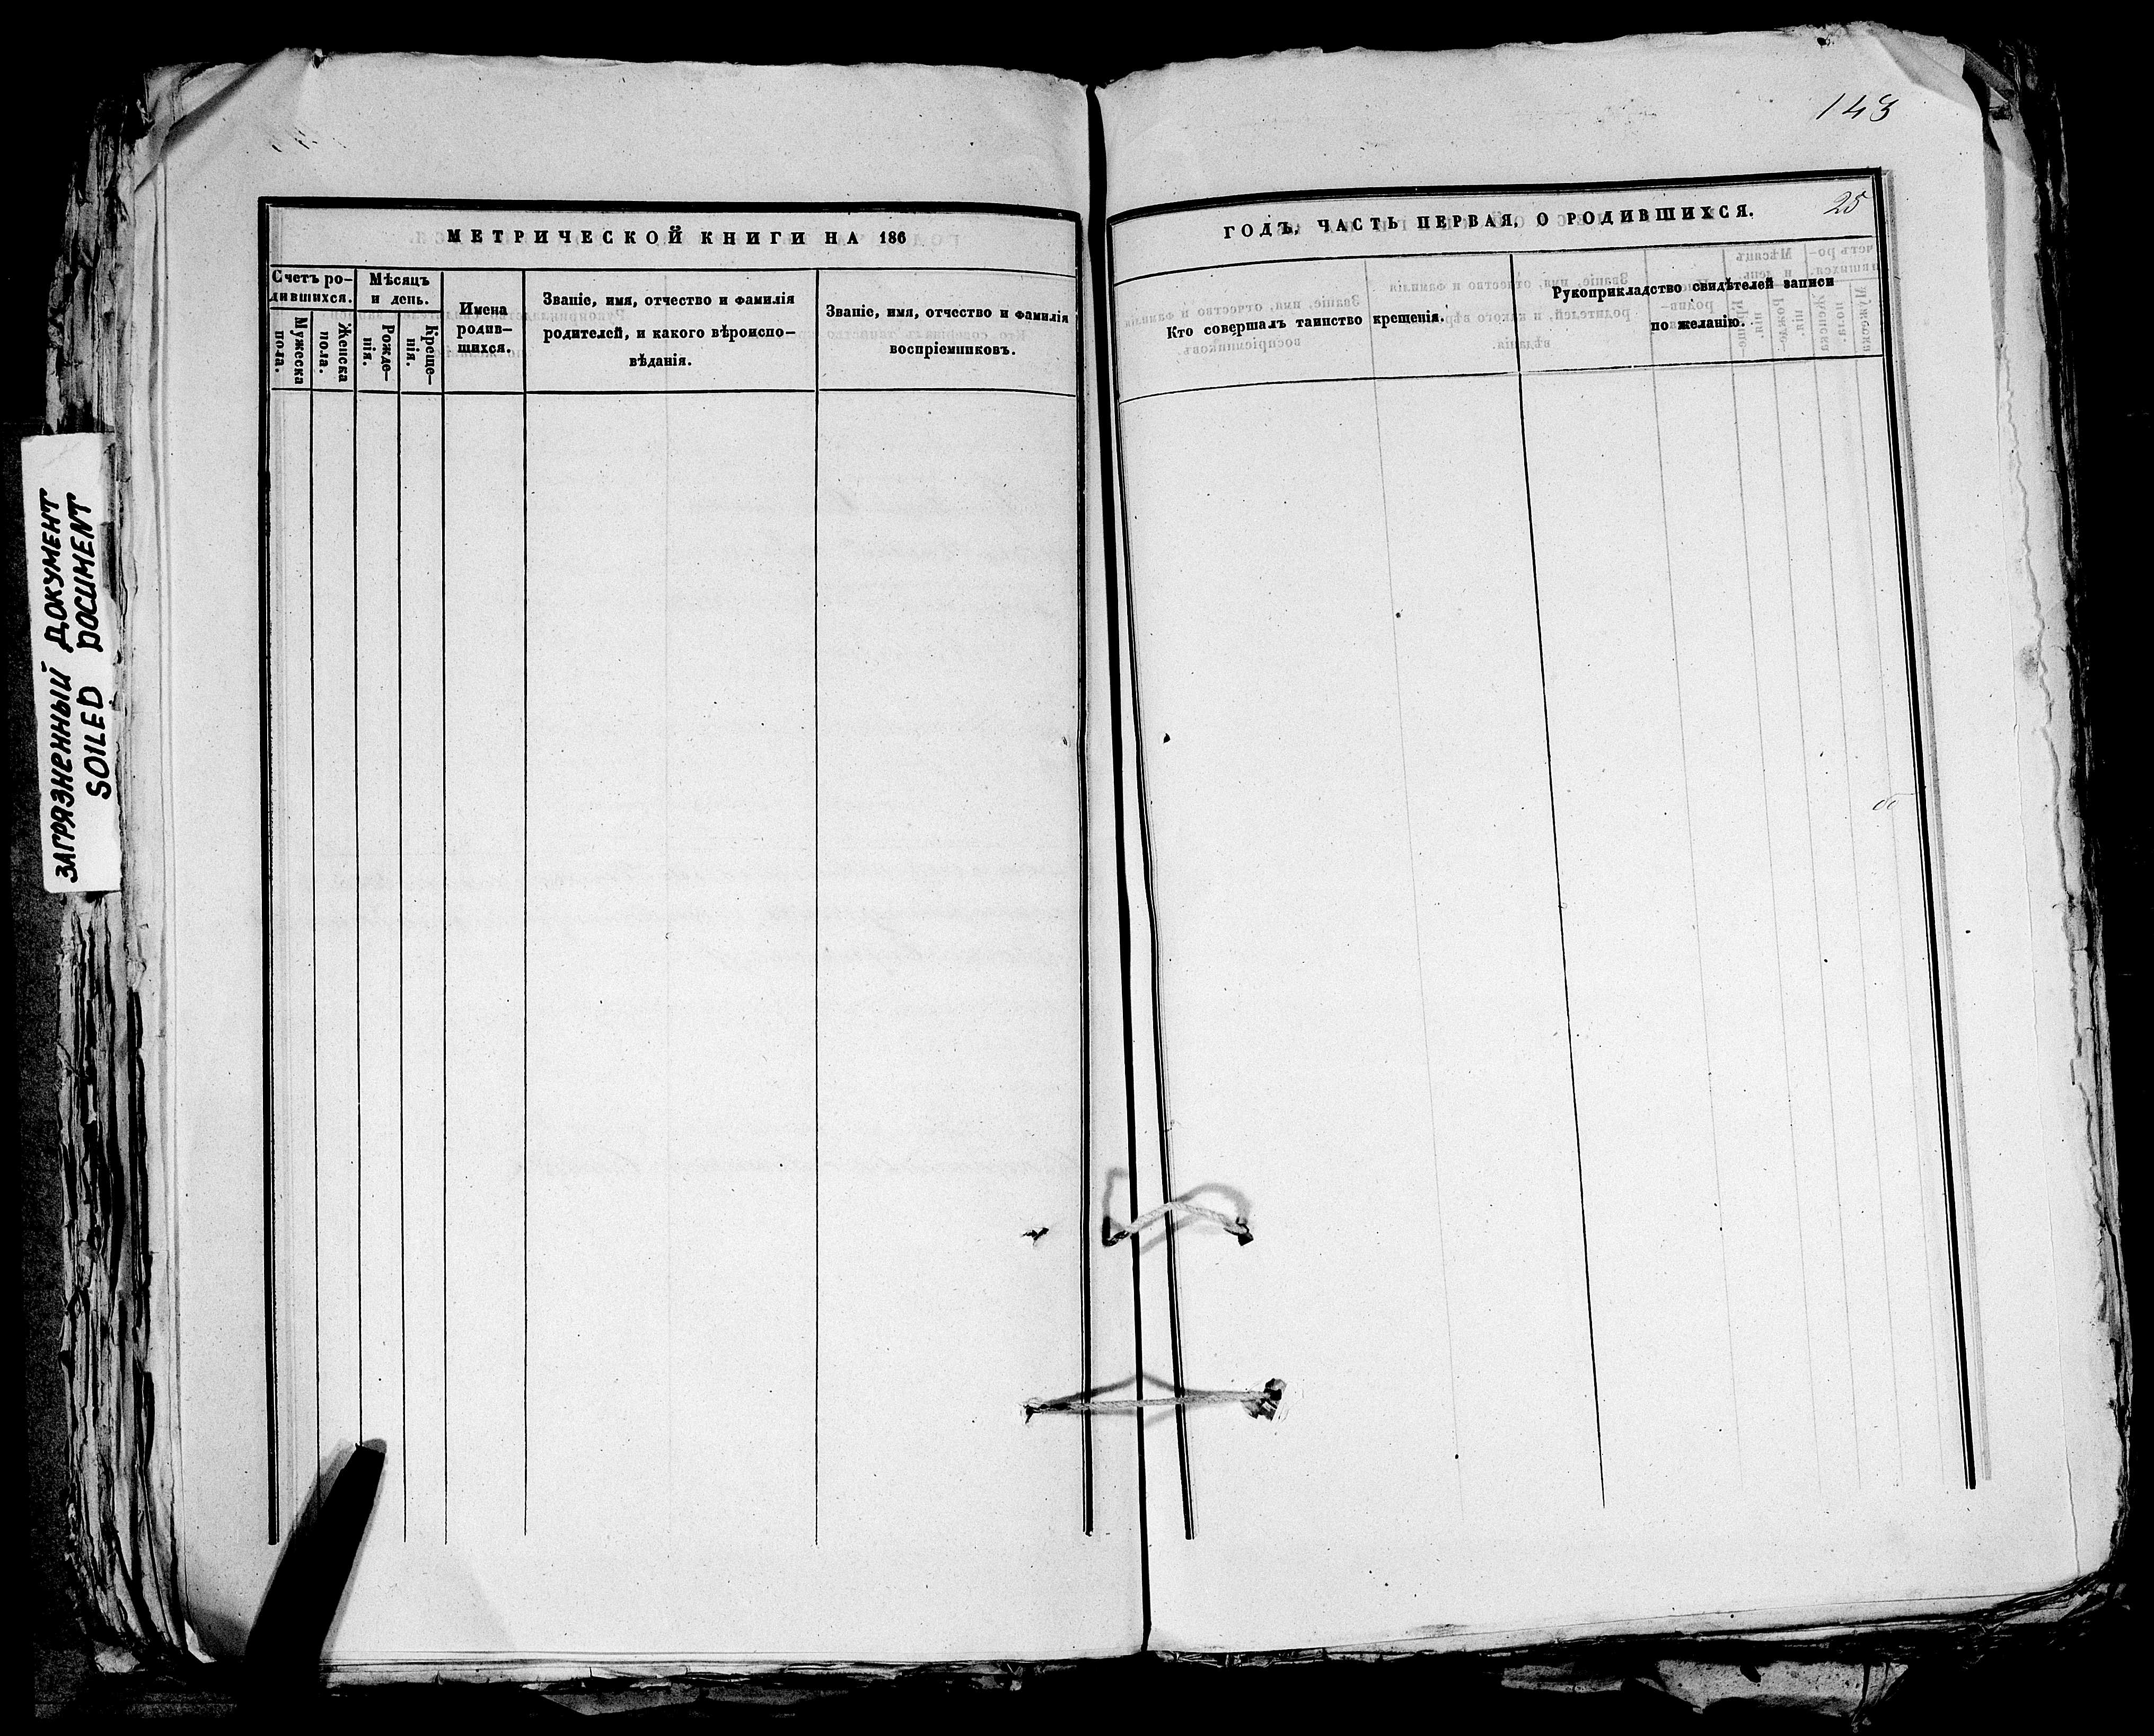 ЗАГРЯЗНЕННЫЙ ДОКУМЕНТ
SOILED DOCUMENT
МЕТРИЧЕСКОЙ КНИГИ НА 186
Счетъ ро-
дившихся.
Мужеска
пола.
Женска
пола.
Мѣсяцъ
и день.
Рожде-
нія.
Креще-
нія.
Имена
родив-
шихся.
Званіе, имя, отчество и фамилія
родителей, и какого вѣроиспо-
вѣданія.
Званіе, имя, отчество и фамилія
воспріемниковъ.
143
25
ГОДЪ, ЧАСТЬ ПЕРВАЯ, О РОДИВШИХСЯ.
Кто совершалъ таинство крещенія.
Рукоприкладство свидѣтелей записи
по желанію.